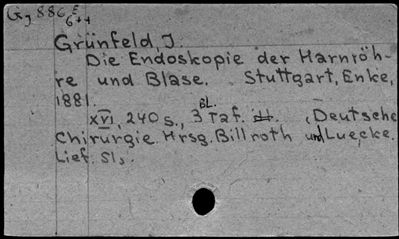 Gg 886 E
6++
Grünfeld, J.
Die Endoskopie der Harnröh-
re und Blase. Stuttgart, Enke,
1881.
XVI, 240 S., 3 BL. Taf. (Deutsche
Chirurgie. Hrsg. Billroth und Luecke.
Lief. 51).